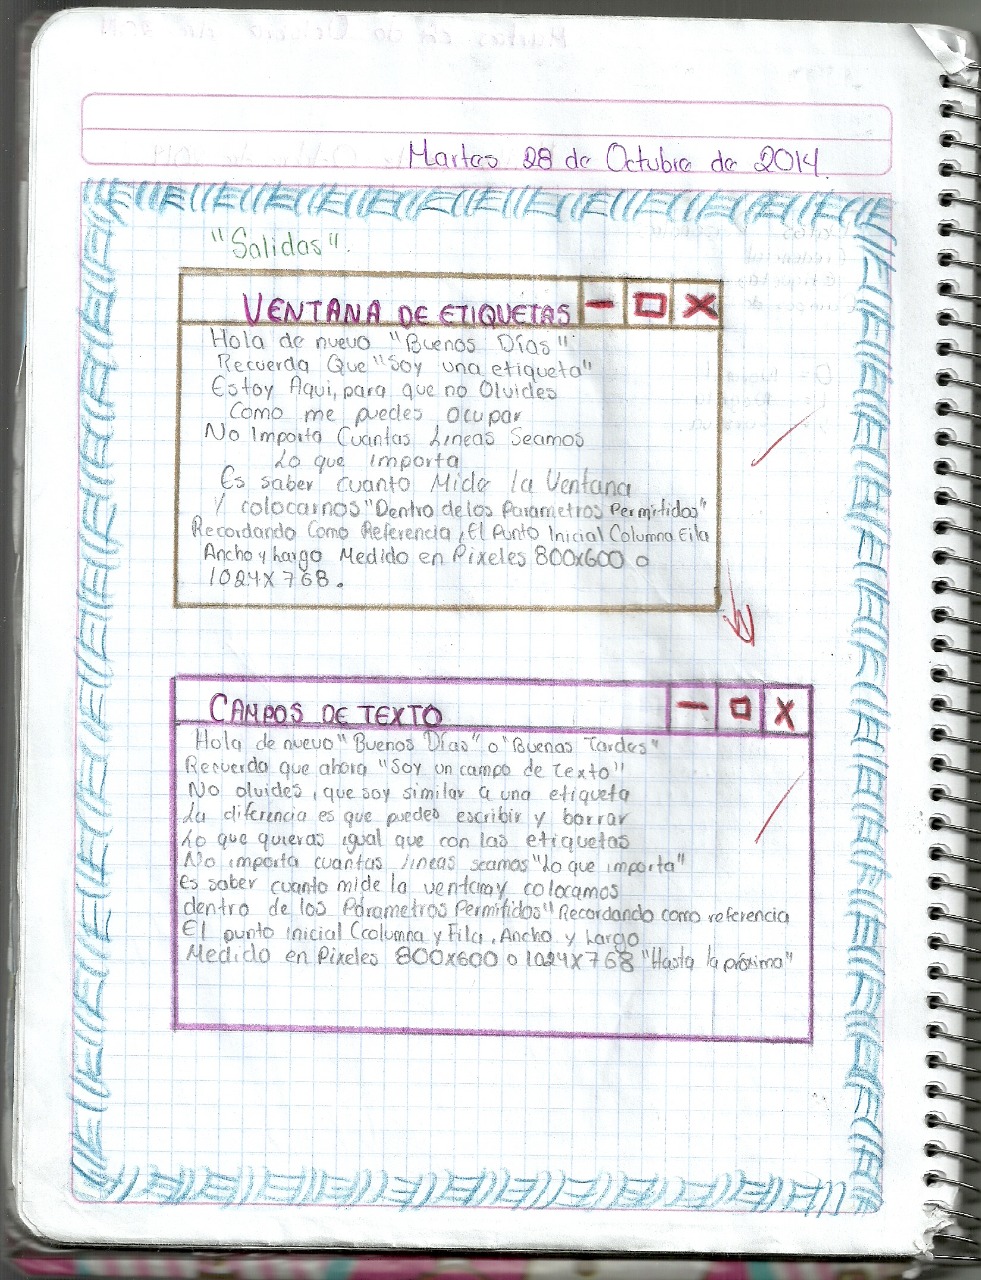 Martes 28 de Octubre de 2014.
"Salidas".
VENTANA DE ETIQUETAS
Hola de nuevo "Buenos Días"
Recuerda Que "Soy una etiqueta"
Estoy Aqui, para que no Olvides
Como me puedes Ocupar
No Importa Cuantas Lineas Seamos
Lo que importa
Es saber cuanto Mide la Ventana
Y colocarnos "Dentro de los Parametros Permitidos"
Recordando Como Referencia, El Punto Inicial Columna Fila
Ancho y Largo Medido en Pixeles 800x600 o
1024X768.
CAMPOS DE TEXTO
Hola de nuevo "Buenos Días" o "Buenas Tardes"
Recuerda que ahora "Soy un campo de texto"
No olvides, que soy similar a una etiqueta
La diferencia es que puedes escribir y borrar
Lo que quieras igual que con las etiquetas
No importa cuantas lineas seamos "Lo que importa"
Es saber cuanto mide la ventana y colocarnos
dentro de los Parametros Permitidos" Recordando como referencia
El punto inicial (columna y Fila, Ancho y Largo
Medido en Pixeles 800x600 o 1024X768 "Hasta la próxima"